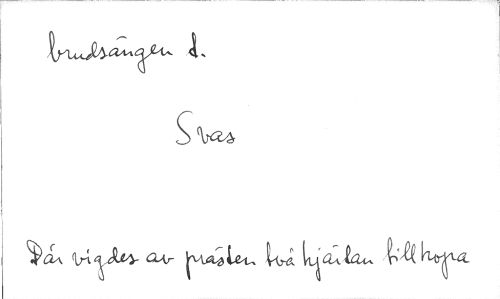 brudsängen d.
Svas
Där vigdes av prästen två hjärtan tillhopa